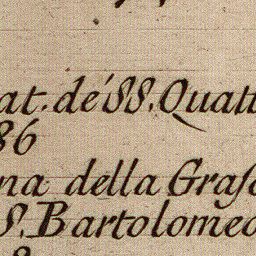 at. de' SS. Quatt
86
na della Graſc
S. Bartolomeo